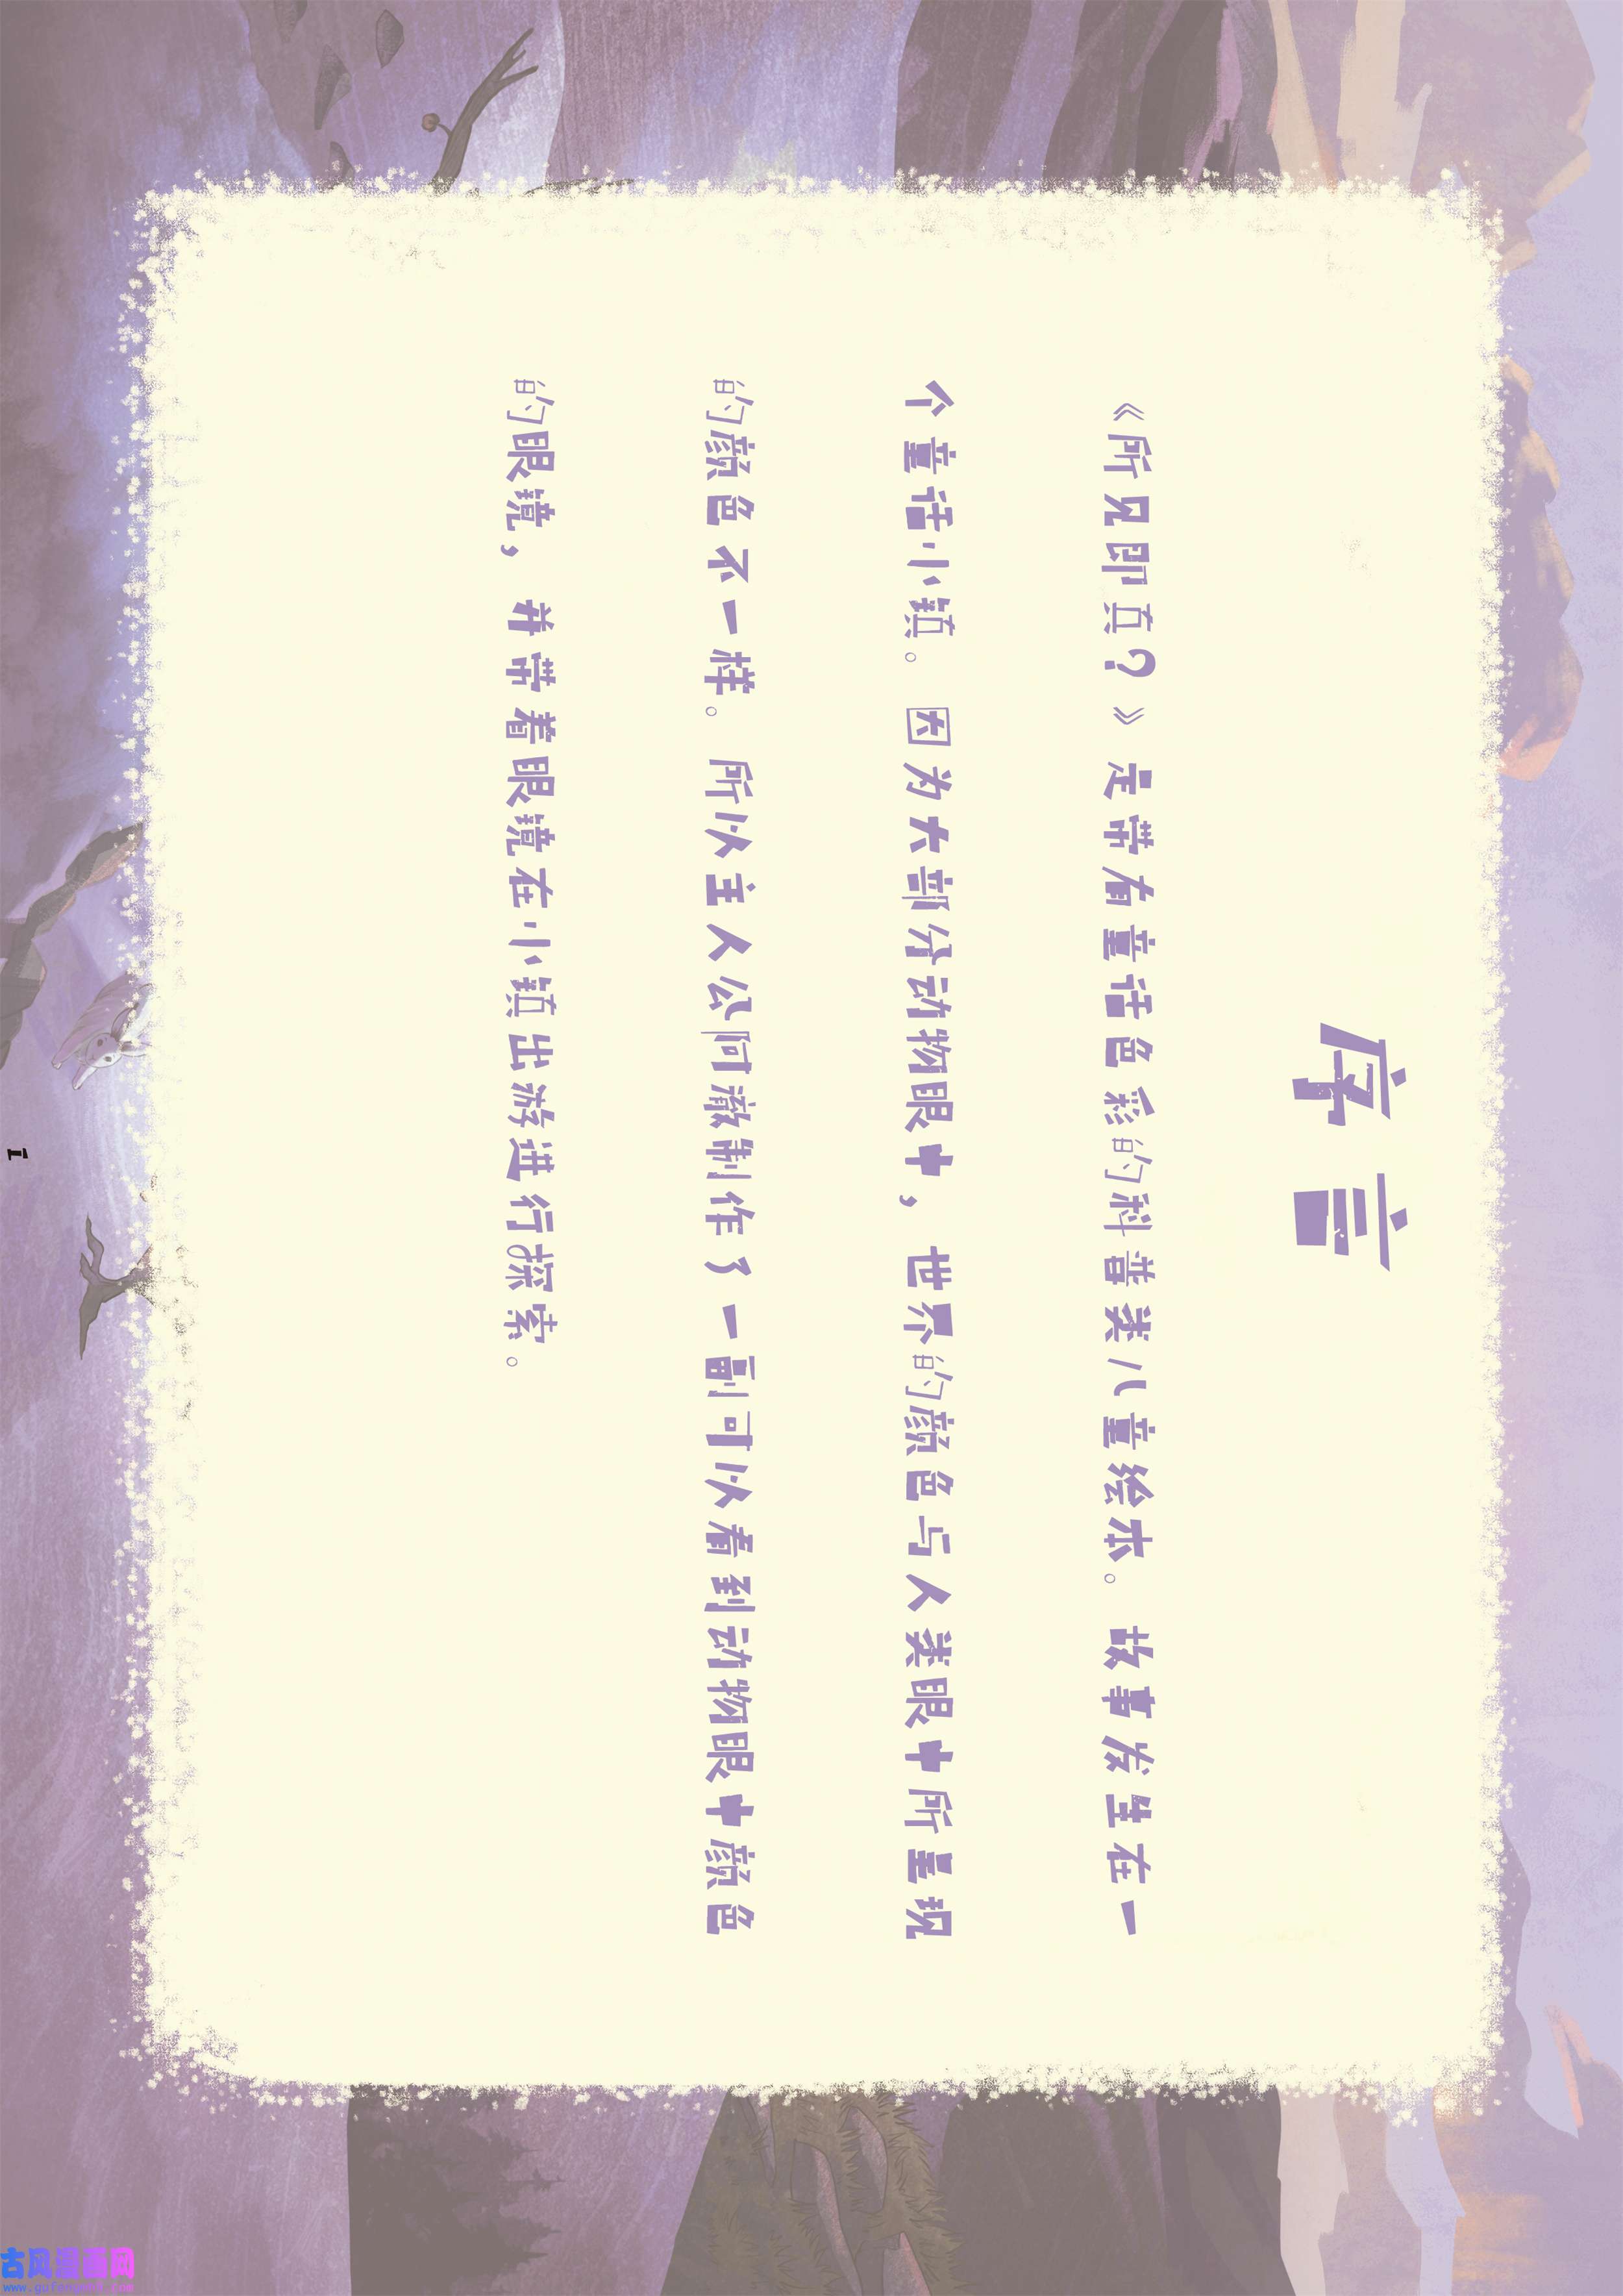 序言
《所见即真？》是带有童话色彩的科普类儿童绘本。故事发生在一
个童话小镇。因为大部分动物眼中，世界的颜色与人类眼中所呈现
的颜色不一样。所以主人公阿澈制作了一副可以看到动物眼中颜色
的眼镜，并带着眼镜在小镇出游进行探索。
1
古风漫画网
www.gufengmh9.com